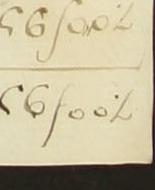 56 foot
56 foot